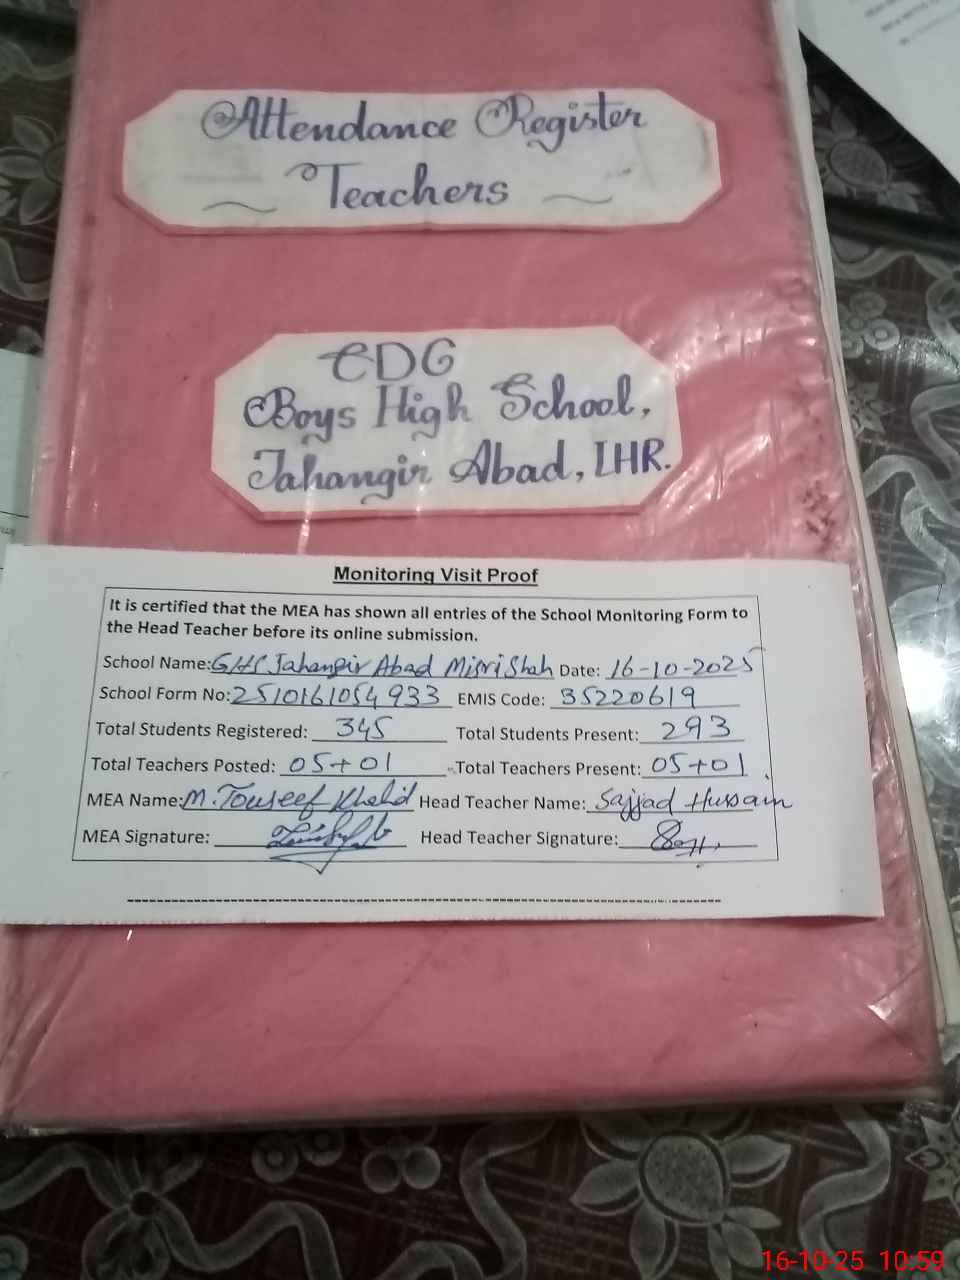 Attendance Register
Teachers
CDG
Boys High School,
Jahangir Abad, LHR.
Monitoring Visit Proof
It is certified that the MEA has shown all entries of the School Monitoring Form to
the Head Teacher before its online submission.
School Name: GHS Jahangir Abad Misri Shah Date: 16-10-2025
School Form No: 2510161054933 EMIS Code: 35220619
Total Students Registered: 345 Total Students Present: 293
Total Teachers Posted: 05+01 Total Teachers Present: 05+01
MEA Name: M. Touseef Khalid Head Teacher Name: Sajjad Hussain
MEA Signature: Head Teacher Signature:
16-10-25 10:59